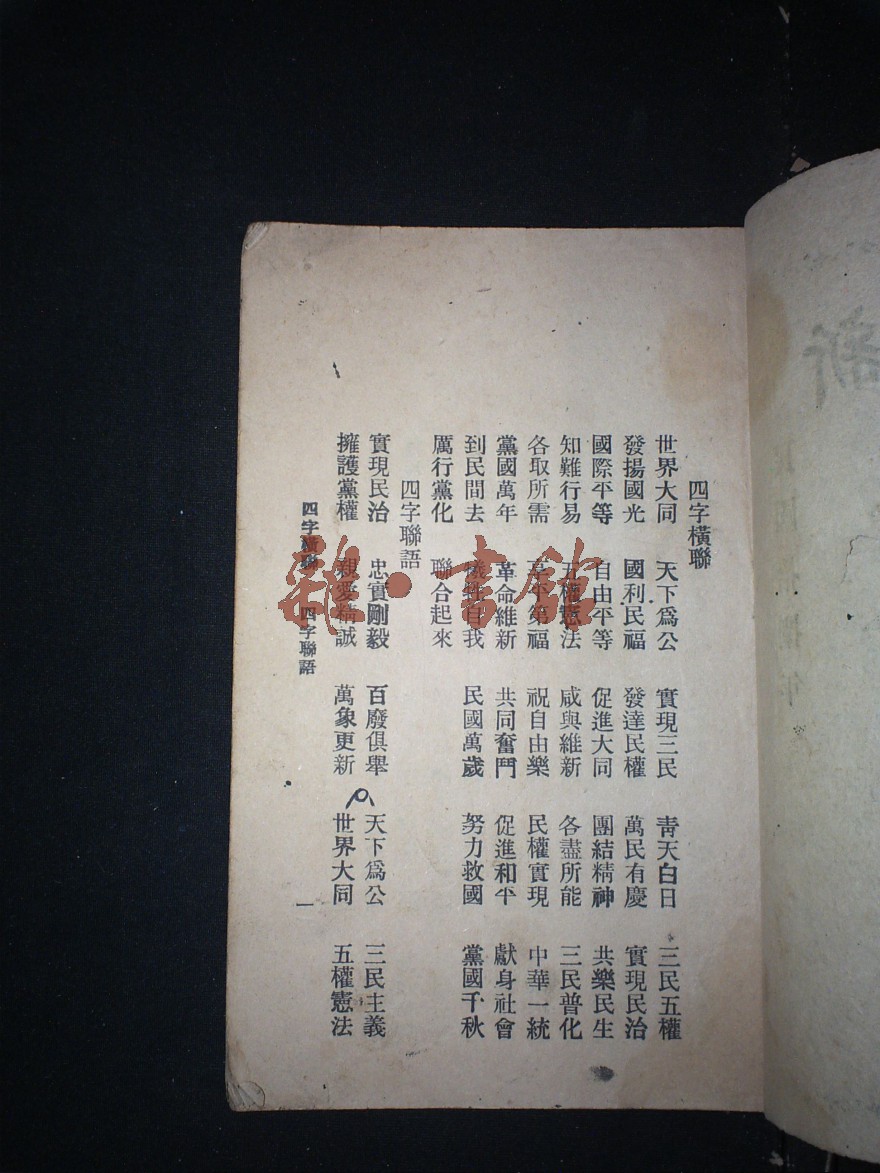 四字橫聯
世界大同 天下爲公 實現三民 靑天白日 三民五權
發揚國光 國利民福 發達民權 萬民有慶 實現民治
國際平等 自由平等 促進大同 團結精神 共樂民生
知難行易 五權憲法 咸與維新 各盡所能 三民普化
各取所需 享平第福 祝自由樂 民權實現 中華一統
黨國萬年 革命維新 共同奮鬥 促進和平 獻身社會
到民間去 犧牲自我 民國萬歲 努力救國 黨國千秋
厲行黨化 聯合起來
四字聯語
實現民治 忠實剛毅 百廢俱舉 天下爲公 三民主義
擁護黨權 親愛精誠 萬象更新 世界大同 五權憲法
四字橫聯 四字聯語 一
雜·書館
新